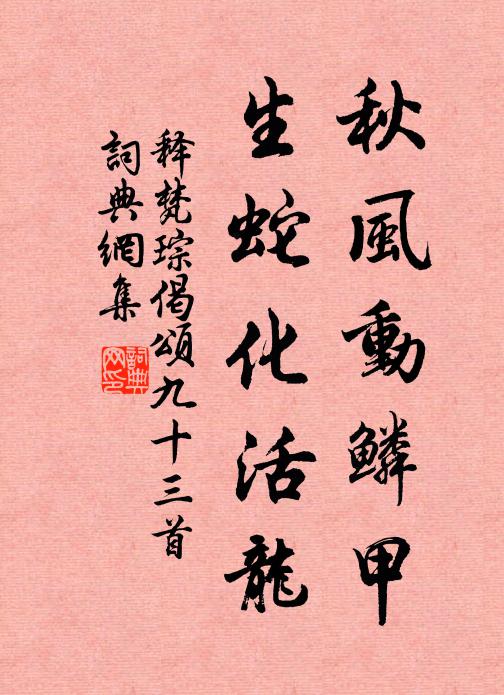 秋風動鱗甲
生蛇化活龍
释梵琮偈頌九十三首
詞典網集
詞典网印